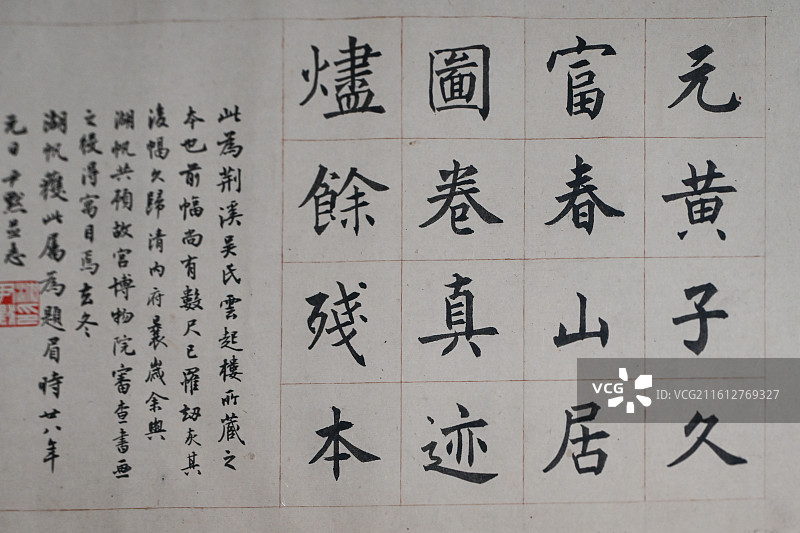 元黄子久
富春山居
圖卷真迹
燼餘殘本
此為荆溪吴氏雲起樓所藏之
本也前幅尚有數尺已羅劫灰其
後幅久歸清内府曩歲余與
湖帆共預故宫博物院審查書画
之役得寓目焉去冬
湖帆獲此屬為題眉時廿八年
元日尹默並志
VCG
VCG211612769327